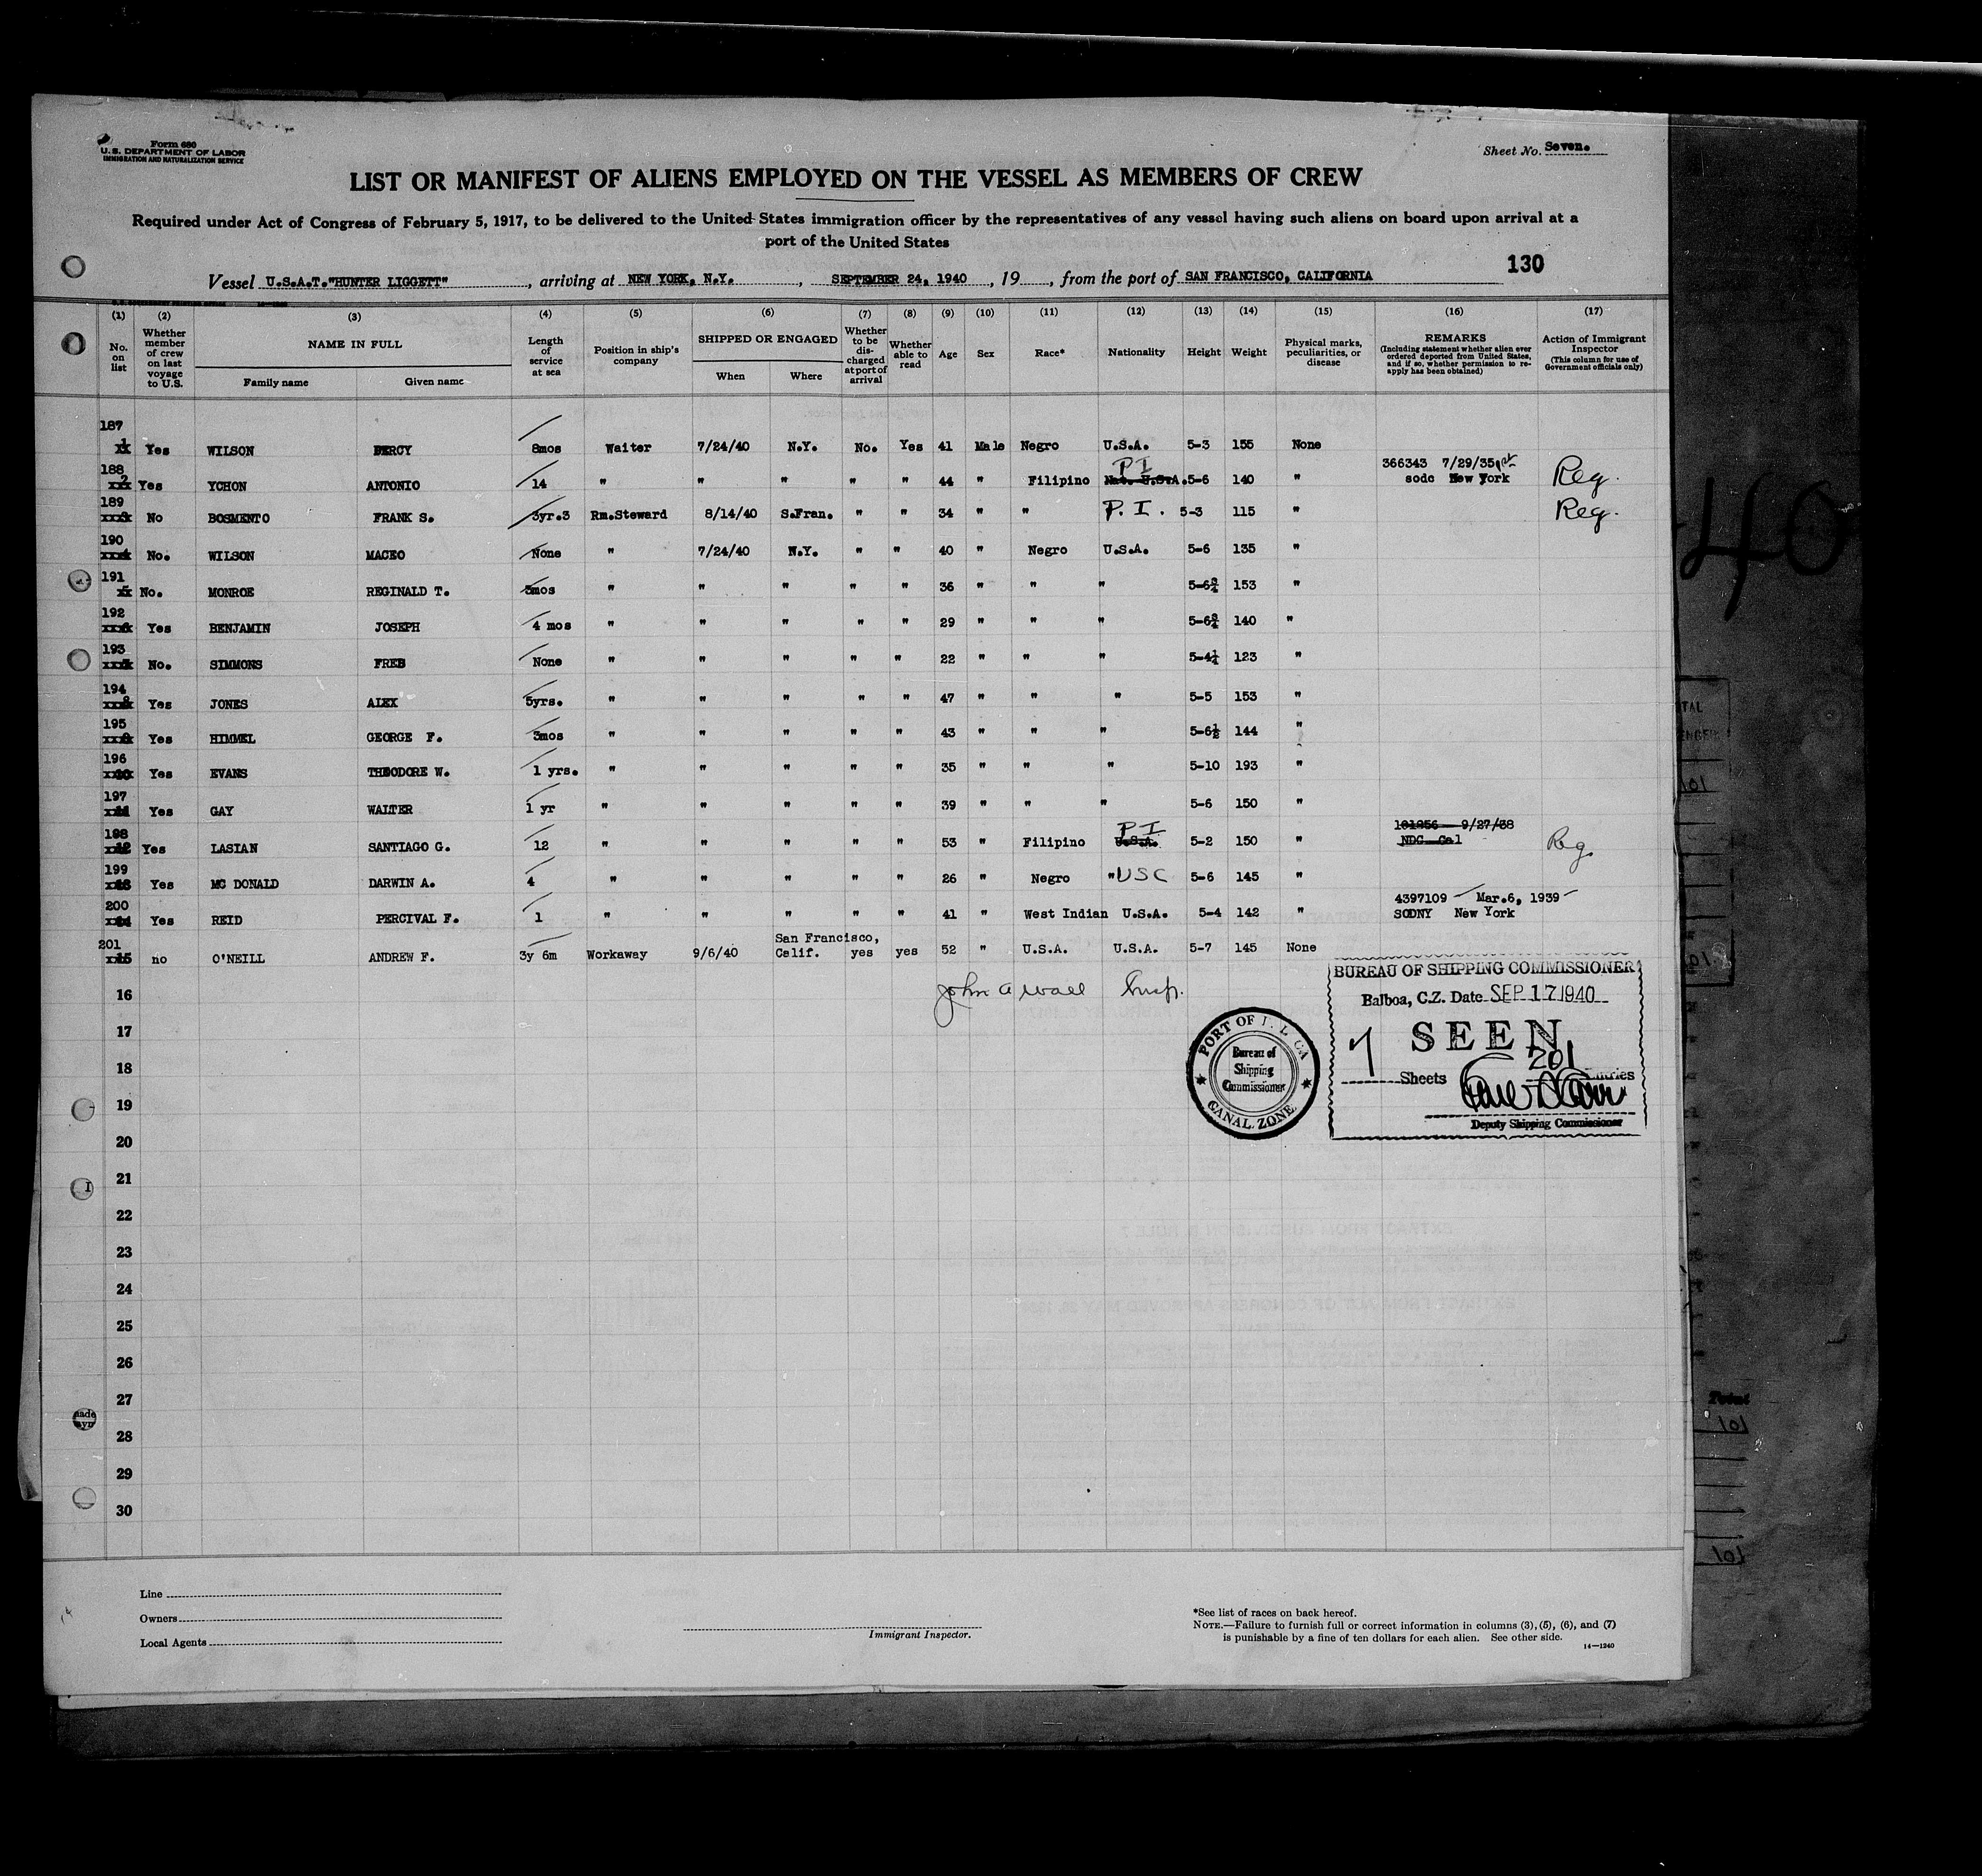 Form 680
U.S. DEPARTMENT OF LABOR
IMMIGRATION AND NATURALIZATION SERVICE
Sheet No. Seven.
LIST OR MANIFEST OF ALIENS EMPLOYED ON THE VESSEL AS MEMBERS OF CREW
Required under Act of Congress of February 5, 1917, to be delivered to the United States immigration officer by the representatives of any vessel having such aliens on board upon arrival at a
port of the United States
130
Vessel U.S.A.T."HUNTER LIGGETT", arriving at NEW YORK, N.Y., SEPTEMBER 24, 1940, 19, from the port of SAN FRANCISCO, CALIFORNIA
(1) (2) (3) (4) (5) (6) (7) (8) (9) (10) (11) (12) (13) (14) (15) (16) (17)
No. on list
Whether member of crew on last voyage to U.S.
NAME IN FULL
Family name Given name
Length of service at sea
Position in ship's company
SHIPPED OR ENGAGED
When Where
Whether to be discharged at port of arrival
Whether able to read
Age
Sex
Race*
Nationality
Height
Weight
Physical marks, peculiarities, or disease
REMARKS
(Including statement whether alien ever ordered deported from United States, and if so, whether permission to reapply has been obtained)
Action of Immigrant Inspector
(This column for use of Government officials only)
187
1 Yes WILSON PERCY 8mos Waiter 7/24/40 N.Y. No. Yes 41 Male Negro U.S.A. 5-3 155 None
188 P I 366343 7/29/35
2 Yes YCHON ANTONIO 14 " " " " " 44 " Filipino Nat. U.S.A. 5-6 140 " sodc New York Reg.
189
No BOSMENTO FRANK S. 3yr.3 Rm.Steward 8/14/40 S.Fran. " " 34 " " P. I. 5-3 115 " Reg.
190
No. WILSON MACEO None " 7/24/40 N.Y. " " 40 " Negro U.S.A. 5-6 135 "
191
5 No. MONROE REGINALD T. 3mos " " " " " 36 " " " 5-6¾ 153 "
192
Yes BENJAMIN JOSEPH 4 mos " " " " " 29 " " " 5-6¾ 140 "
193
No. SIMMONS FRED None " " " " " 22 " " " 5-4¼ 123 "
194
Yes JONES ALEX 5yrs. " " " " " 47 " " " 5-5 153 "
195
Yes HIMMEL GEORGE F. 3mos " " " " " 43 " " " 5-6½ 144 "
196
10 Yes EVANS THEODORE W. 1 yrs. " " " " " 35 " " " 5-10 193 "
197
11 Yes GAY WALTER 1 yr " " " " " 39 " " " 5-6 150 "
198 P I 101956 9/27/38
12 Yes LASIAN SANTIAGO G. 12 " " " " " 53 " Filipino U.S.A. 5-2 150 " NDC Cal Reg.
199
13 Yes MC DONALD DARWIN A. 4 " " " " " 26 " Negro " USC 5-6 145 "
200 4397109 Mar.6, 1939
14 Yes REID PERCIVAL F. 1 " " " " " 41 " West Indian U.S.A. 5-4 142 " SODNY New York
201 San Francisco,
15 no O'NEILL ANDREW F. 3y 6m Workaway 9/6/40 Calif. yes yes 52 " U.S.A. U.S.A. 5-7 145 None
John A Wall Insp.
16
17
18
19
20
21
22
23
24
25
26
27
28
29
30
BUREAU OF SHIPPING COMMISSIONER
Balboa, C.Z. Date SEP 17 1940
SEEN
7 Sheets 201 Entries
Deputy Shipping Commissioner
PORT OF
Bureau of
Shipping
Commissioner
CANAL ZONE
40
Line
Owners
Local Agents
Immigrant Inspector.
*See list of races on back hereof.
NOTE.—Failure to furnish full or correct information in columns (3), (5), (6), and (7)
is punishable by a fine of ten dollars for each alien. See other side.
14—1240
Total
101
101